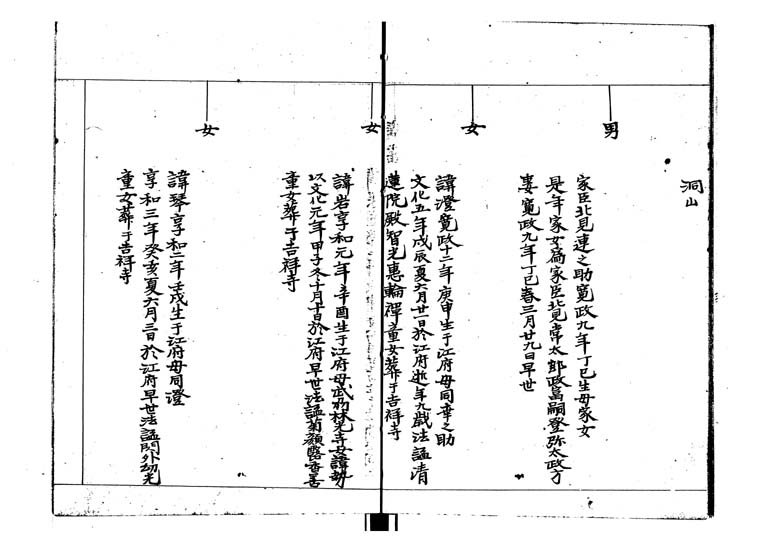 洞山
男
家臣北見連之助寛政九年丁巳生母家女
是年家女為家臣北見常太郎政富嗣登弥太政方
妻寛政九年丁巳春三月廿九日早世
女
諱澄寛政十二年庚申生于江府母同幸之助
文化五年戊辰夏六月廿一日於江府逝年九歳法諡清
蓮院殿智光惠輪禪童女葬于吉祥寺
女
諱岩享和元年辛酉生于江府母武州林光寺女諱勢
以文化元年甲子冬十月十日於江府早世法諡菊顔露香善
童女葬于吉祥寺
女
諱琴享和二年壬戌生于江府母同澄
享和三年癸亥夏六月三日於江府早世法諡閃外幼光
童女葬于吉祥寺